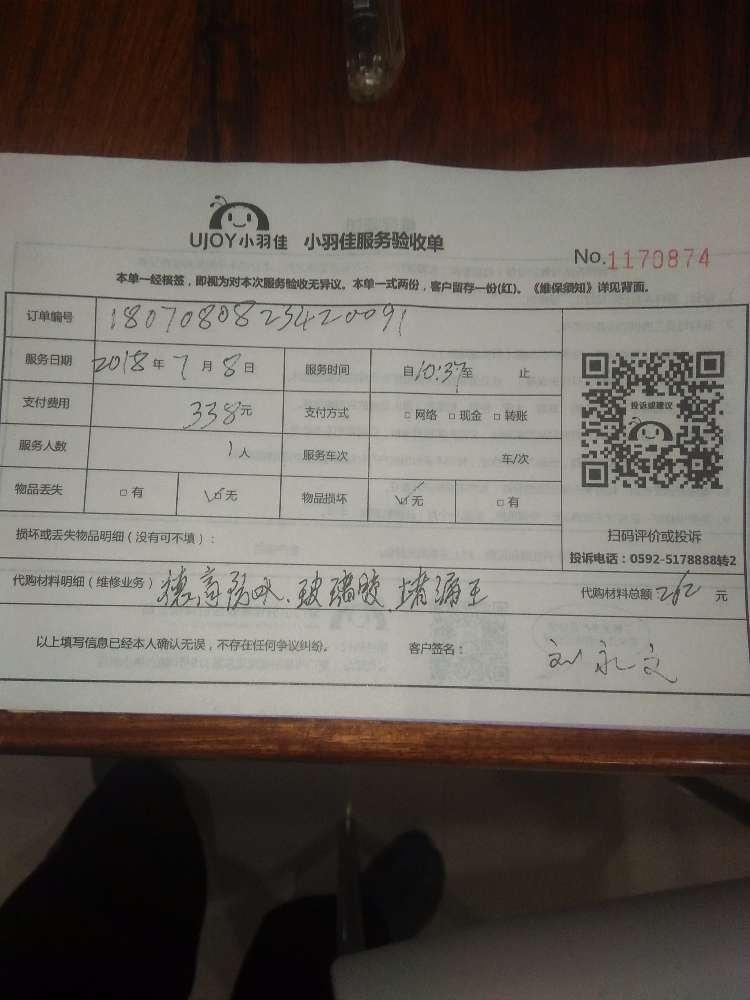 UJOY小羽佳 小羽佳服务验收单
No.1170874
本单一经核签，即视为对本次服务验收无异议。本单一式两份，客户留存一份(红)。《维保须知》详见背面。
订单编号 1807080823420091
服务日期 2018年7月8日 服务时间 自10:37至 止
支付费用 338元 支付方式 □网络 □现金 □转账
投诉或建议
服务人数 1人 服务车次 车/次
物品丢失 □有 ☑无 物品损坏 ☑无 □有
损坏或丢失物品明细（没有可不填）：
扫码评价或投诉
投诉电话：0592-5178888转2
代购材料明细（维修业务） 德高防水、玻璃胶、堵漏王 代购材料总额 元
以上填写信息已经本人确认无误，不存在任何争议纠纷。 客户签名： 刘永文